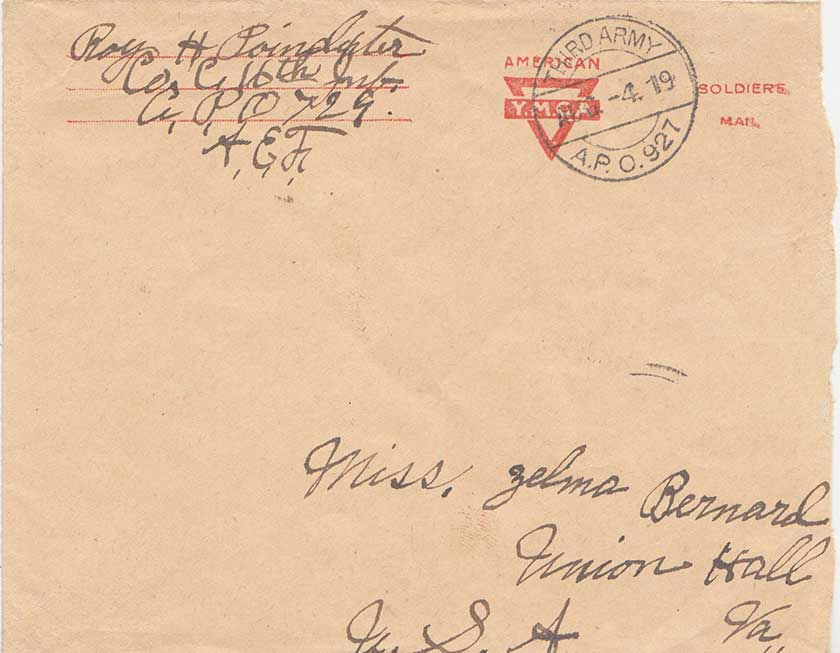 Roy H Poindexter
Co, C, 16th Inf.
A, P, O 729.
A, E, F,
AMERICAN
Y.M.C.A
SOLDIERS
MAIL
THIRD ARMY
-4. 19
A.P.O. 927
Miss, Zelma Bernard
Union Hall
Va
U. S. A